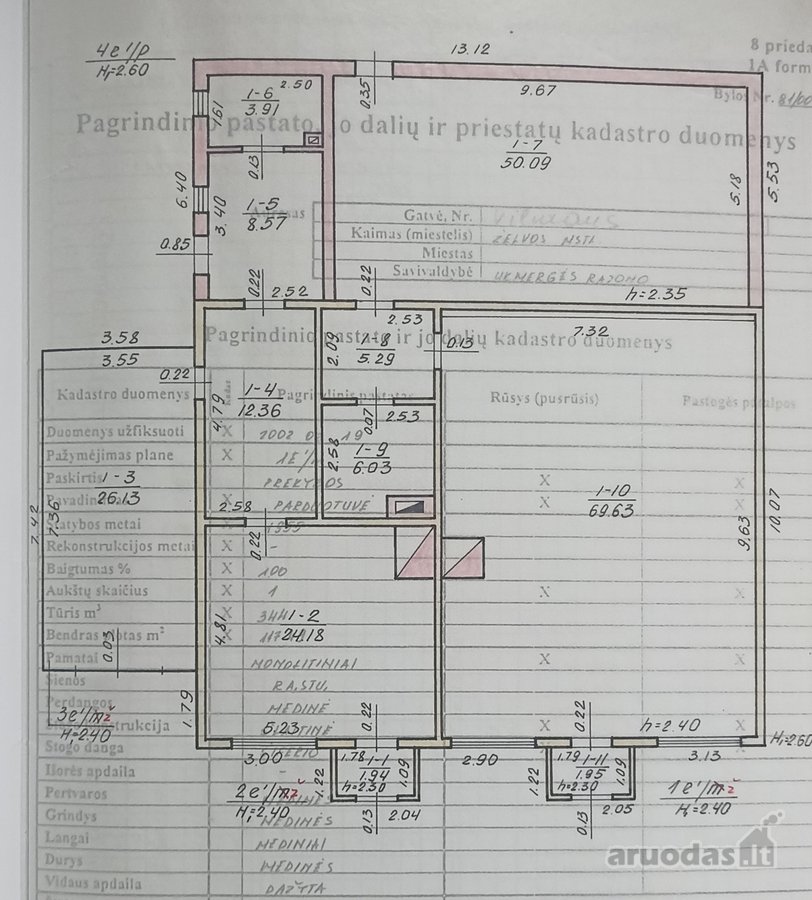 4e¹/p
H₁=2.60
13.12
8 prieda
1A form
Bylos Nr. 81/00
Pagrindinio pastato, jo dalių ir priestatų kadastro duomenys
2.50
1-6
3.91
1.61
0.35
9.67
0.13
1-7
50.09
5.18
5.53
6.40
3.40
1-5
8.57
0.85
Adresas
Gatvė, Nr.
Kaimas (miestelis) ŽELVOS MSTL
Miestas
Savivaldybė UKMERGĖS RAJONO
0.22
2.52
0.22
h=2.35
Pagrindinio pastato ir jo dalių kadastro duomenys
3.58
3.55
0.22
2.53
2.09
1-8
5.29
0.13
7.32
Kadastro duomenys
Kodas
Pagrindinis pastatas
Rūsys (pusrūsis)
Pastogės patalpos
1-4
12.36
4.79
0.07
2.53
2.58
1-9
6.03
Duomenys užfiksuoti X 2002 19
Pažymėjimas plane X 1E¹/
Paskirtis PREKYBOS X X
1-3
26.13
Pavadinimas PARDUOTUVĖ X X
1-10
69.63
2.58
Statybos metai
7.42
7.36
Rekonstrukcijos metai X -
0.22
9.63
10.07
Baigtumas % X 100
Aukštų skaičius X 1 X X
Tūris m³ X 344
1-2
24.18
4.81
Bendras plotas m² X
0.03
Pamatai MONOLITINIAI X X
Sienos RĄSTŲ
Perdangos MEDINĖ
3e¹/mž
H₁=2.40
1.79
konstrukcija X X
5.23
0.22
0.22
h=2.40
H₁=2.60
Stogo danga
3.00
1.78
1-1
1.94
h=2.30
1.22
1.09
2.90
1.79
1-11
1.95
h=2.30
1.22
1.09
3.13
Išorės apdaila -
Pertvaros
2e¹/mž
H₁=2.40
0.13
2.04
0.13
2.05
1e¹/mž
H₁=2.40
Grindys MEDINĖS
Langai MEDINIAI
Durys MEDINĖS
Vidaus apdaila DAŽYTA
aruodas.lt